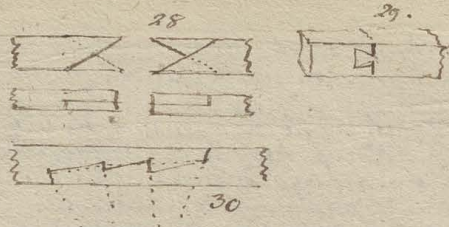 28
29.
30